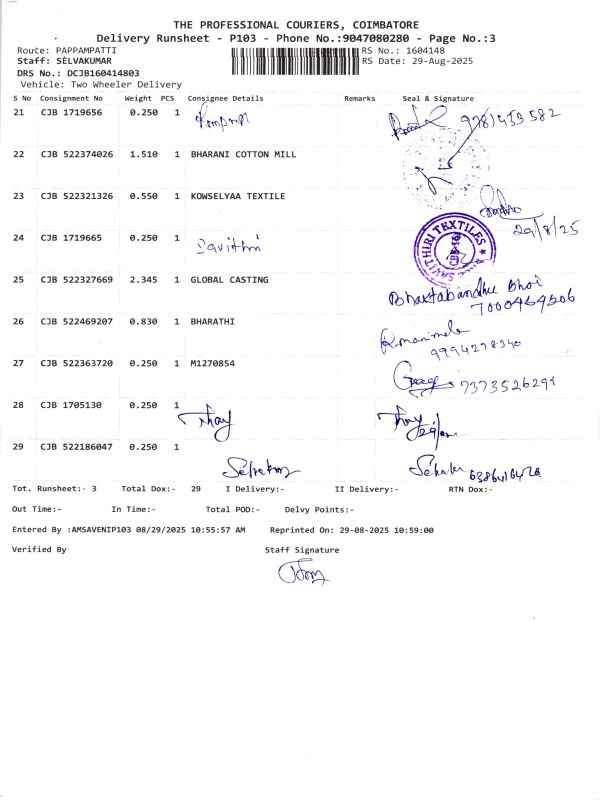 THE PROFESSIONAL COURIERS, COIMBATORE
Delivery Runsheet - P103 - Phone No.:9047080280 - Page No.:3
Route: PAPPAMPATTI RS No.: 1604148
Staff: SELVAKUMAR RS Date: 29-Aug-2025
DRS No.: DCJB160414803
Vehicle: Two Wheeler Delivery
S No Consignment No Weight PCS Consignee Details Remarks Seal & Signature
21 CJB 1719656 0.250 1
22 CJB 522374026 1.510 1 BHARANI COTTON MILL
23 CJB 522321326 0.550 1 KOWSELYAA TEXTILE
29/8/25
24 CJB 1719665 0.250 1 Savithri SAVITHIRI TEXTILES
25 CJB 522327669 2.345 1 GLOBAL CASTING Bhaktabandhu Bhoi
26 CJB 522469207 0.830 1 BHARATHI
9994278340
27 CJB 522363720 0.250 1 M1270854
28 CJB 1705130 0.250 1
29 CJB 522186047 0.250 1
Tot. Runsheet:- 3 Total Dox:- 29 I Delivery:- II Delivery:- RTN Dox:-
Out Time:- In Time:- Total POD:- Delvy Points:-
Entered By :AMSAVENIP103 08/29/2025 10:55:57 AM Reprinted On: 29-08-2025 10:59:00
Verified By Staff Signature